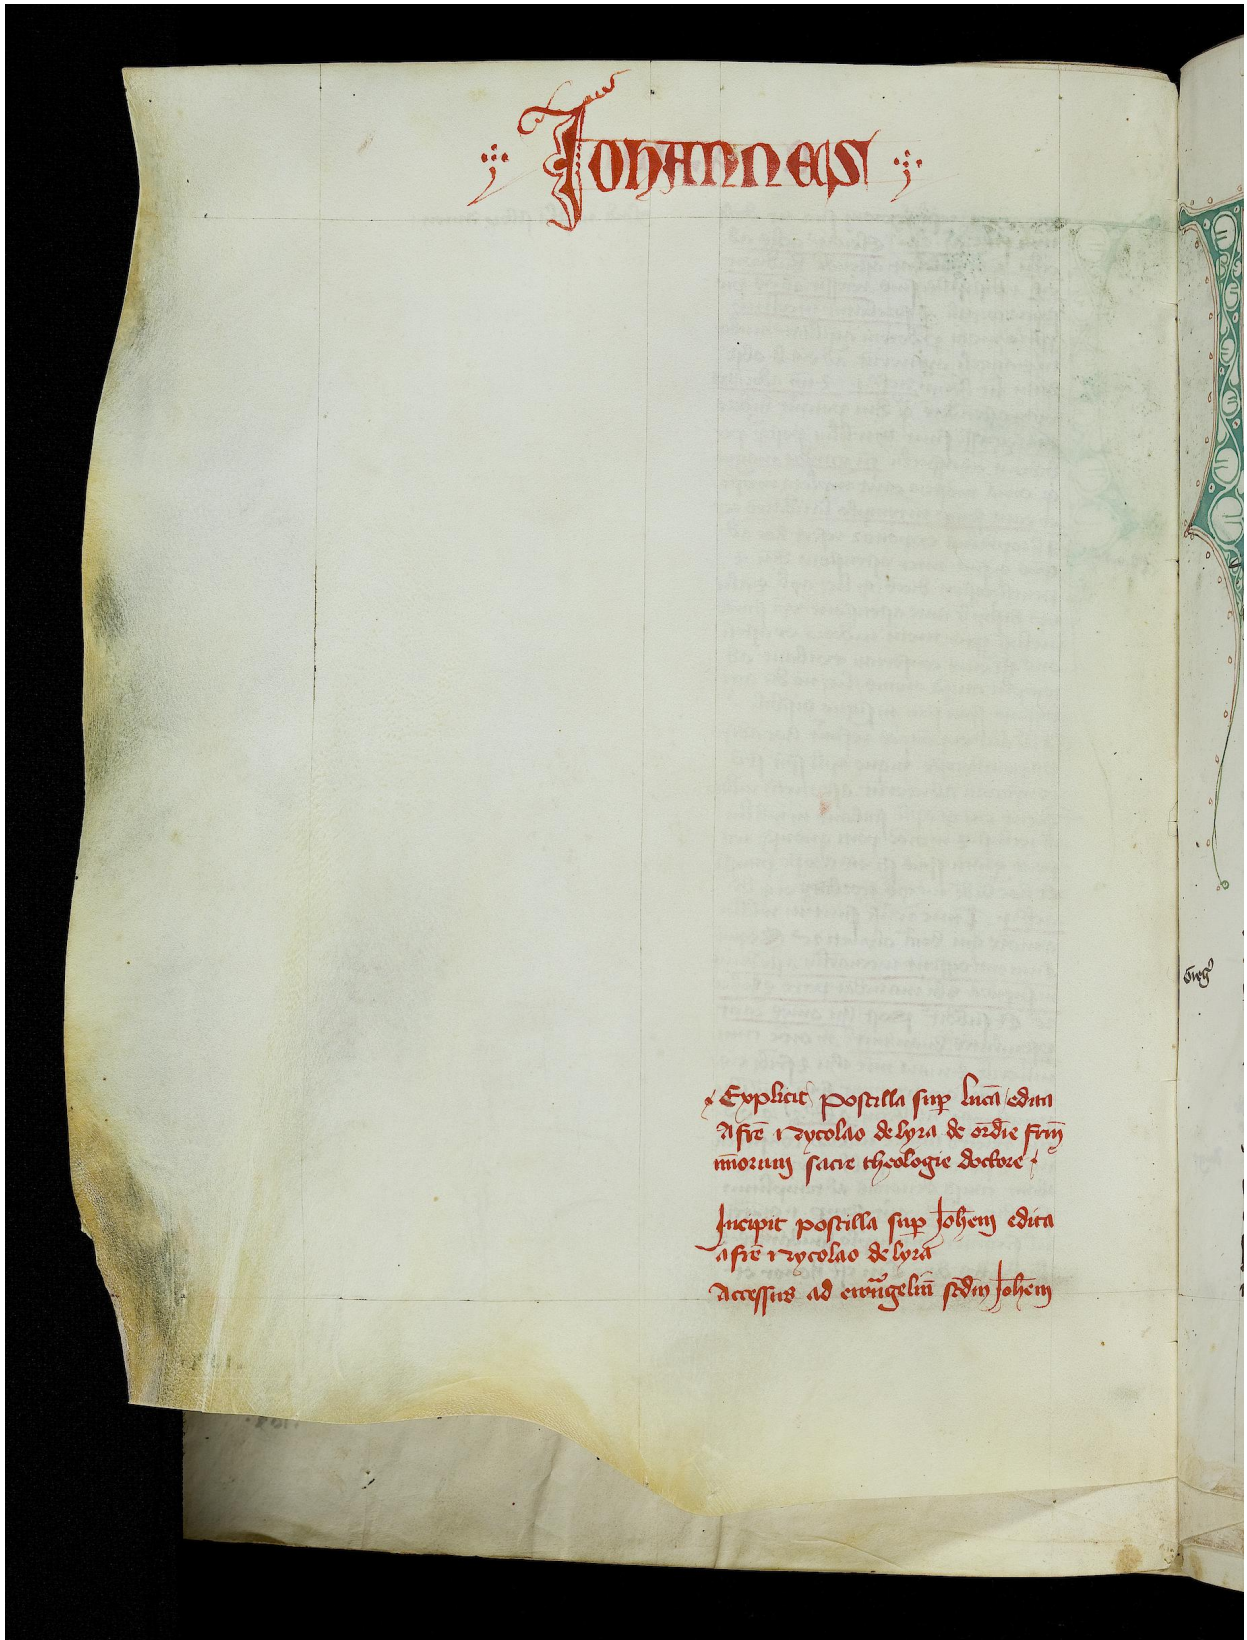 Johannes
Explicit postilla sup̱ lucā edita
a fr̄e Nycolao de lyra de ordīe fr̄m
mīorum sacre theologie doctore
Incipit postilla sup̱ Joh̄em edita
a fr̄e Nycolao de lyra
Accessus ad ewāngeliū scd̄m Joh̄em
Greg᷒